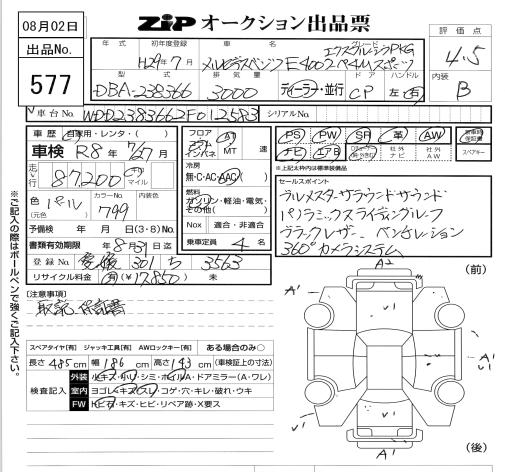 08月02日
ZIP オークション出品票
出品No.
577
年式
初年度登録
H29年7月
車名
メルセデスベンツ E400クーペ4Mスポーツ
グレード
エクスクルーシブPKG
評価点
4.5
型式
DBA-238366
排気量
3000
ディーラー・並行
ドア
CP
ハンドル
左 右
内装
B
車台No.
WDD2383662F012583
シリアルNo.
車歴 自家用・レンタ・( )
車検 R8年7/27月
走行 87200 キロ マイル
色 パール
(元色)
カラーNo.
799
内装色
予備検 年 月 日(3・8)No.
書類有効期限 8月31日迄
登録No. 愛媛 301 ち 3563
リサイクル料金 (有)(¥17,850) 未
フロア コラム インパネ
AT
MT 速
冷房
無・C・AC・AAC
燃料
ガソリン・軽油・電気・その他( )
Nox 適合・非適合
乗車定員 4 名
PS PW SR 革 AW
ナビ エアB
社外ナビ
社外AW
新車時保証書
スペアキー
*上記太枠内は標準装備品
セールスポイント
ブルメスターサラウンドサウンド
パノラミックスライディングルーフ
ブラックレザー ベンチレーション
360°カメラシステム
[注意事項]
取説 保証書
スペアタイヤ[有] ジャッキ工具[有] AWロックキー[有] ある場合のみ○
長さ 485cm 幅 186cm 高さ 143cm (車検証上の寸法)
検査記入
外装 小キズ・小凹・シミ・ホイルA・ドアミラー(A・ワレ)
室内 ヨゴレ・キズ・スリ・コゲ・穴・キレ・破れ・ウキ
FW トビ石・キズ・ヒビ・リペア跡・X要ス
※ご記入の際はボールペンで強くご記入下さい。
(前)
A2
A'
A'
V1
V1
A'
V1
V1
(後)